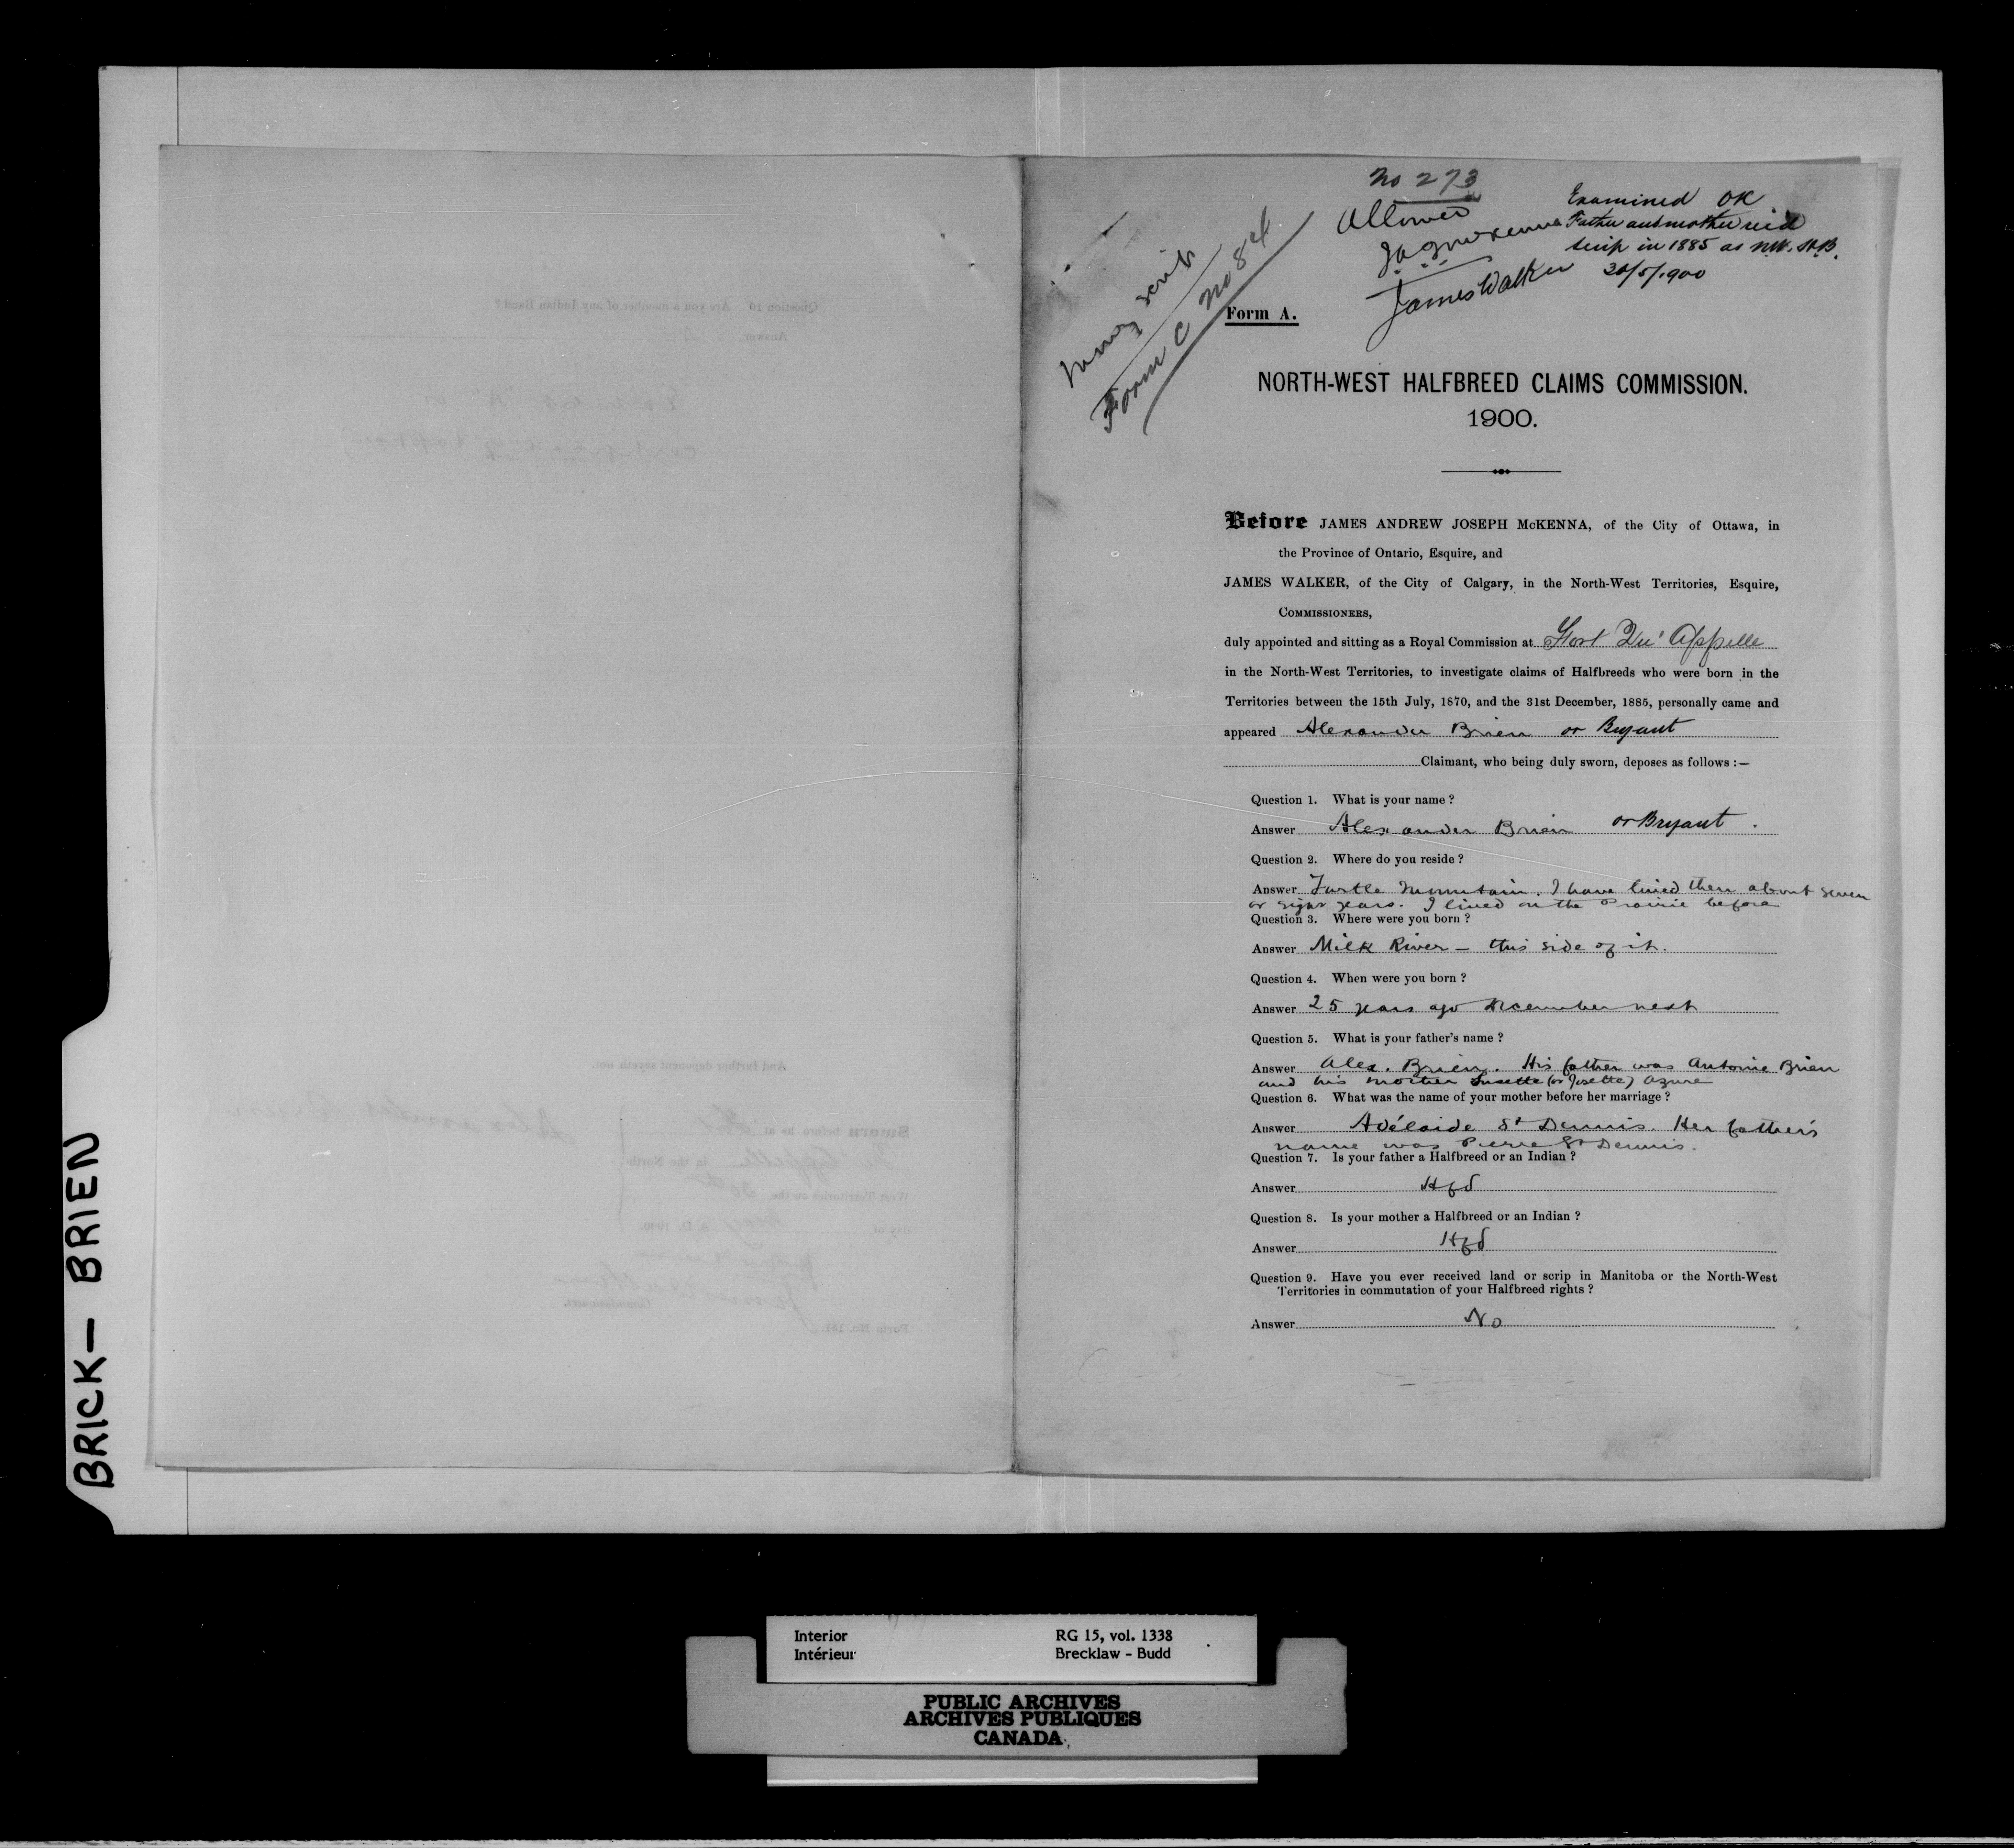 No 273
Allowed
JAJ McKenna
James Walker
Examined OK
Father and mother recd
scrip in 1885 as N.W. H.B.
30/5/1900
money scrip
Form C No 84
Form A.
NORTH-WEST HALFBREED CLAIMS COMMISSION.
1900.
Before JAMES ANDREW JOSEPH McKENNA, of the City of Ottawa, in
the Province of Ontario, Esquire, and
JAMES WALKER, of the City of Calgary, in the North-West Territories, Esquire,
COMMISSIONERS,
duly appointed and sitting as a Royal Commission at Fort Qu'Appelle
in the North-West Territories, to investigate claims of Halfbreeds who were born in the
Territories between the 15th July, 1870, and the 31st December, 1885, personally came and
appeared Alexander Brien or Bryant
Claimant, who being duly sworn, deposes as follows :—
Question 1. What is your name ?
Answer Alexander Brien or Bryant.
Question 2. Where do you reside ?
Answer Turtle Mountain. I have lived there about seven
or eight years. I lived on the Prairie before
Question 3. Where were you born ?
Answer Milk River – this side of it.
Question 4. When were you born ?
Answer 25 years ago December next
Question 5. What is your father's name ?
Answer Alex. Brien. His father was Antoine Brien
and his mother Susette (or Josette) Azure
Question 6. What was the name of your mother before her marriage ?
Answer Adélaide St Dennis. Her father's
name was Pierre St Dennis.
Question 7. Is your father a Halfbreed or an Indian ?
Answer Hfd
Question 8. Is your mother a Halfbreed or an Indian ?
Answer Hfd
Question 9. Have you ever received land or scrip in Manitoba or the North-West
Territories in commutation of your Halfbreed rights ?
Answer No
BRICK — BRIEN
Interior RG 15, vol. 1338
Intérieur Brecklaw - Budd
PUBLIC ARCHIVES
ARCHIVES PUBLIQUES
CANADA